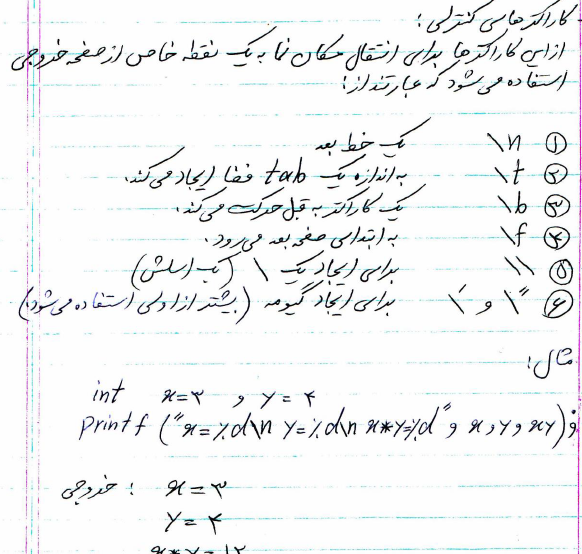 کاراکترهای کنترلی:
از این کاراکترها برای انتقال مکان نما به یک نقطه خاص از صفحه خروجی
استفاده می شود که عبارتند از:
① \n یک خط بعد
② \t به اندازه یک tab فضا ایجاد می کند.
③ \b یک کاراکتر به قبل حرکت می کند.
④ \f به ابتدای صفحه بعد می رود.
⑤ \\ برای ایجاد یک \ (بک اسلش)
⑥ \" و \' برای ایجاد گیومه (بیشتر از اولی استفاده می شود)
مثال:
int x=۳ و y=۴
printf ("x=%d\n y=%d\n x*y=%d" و x و y و xy)و
خروجی: x=۳
y=۴
x*y=۱۲